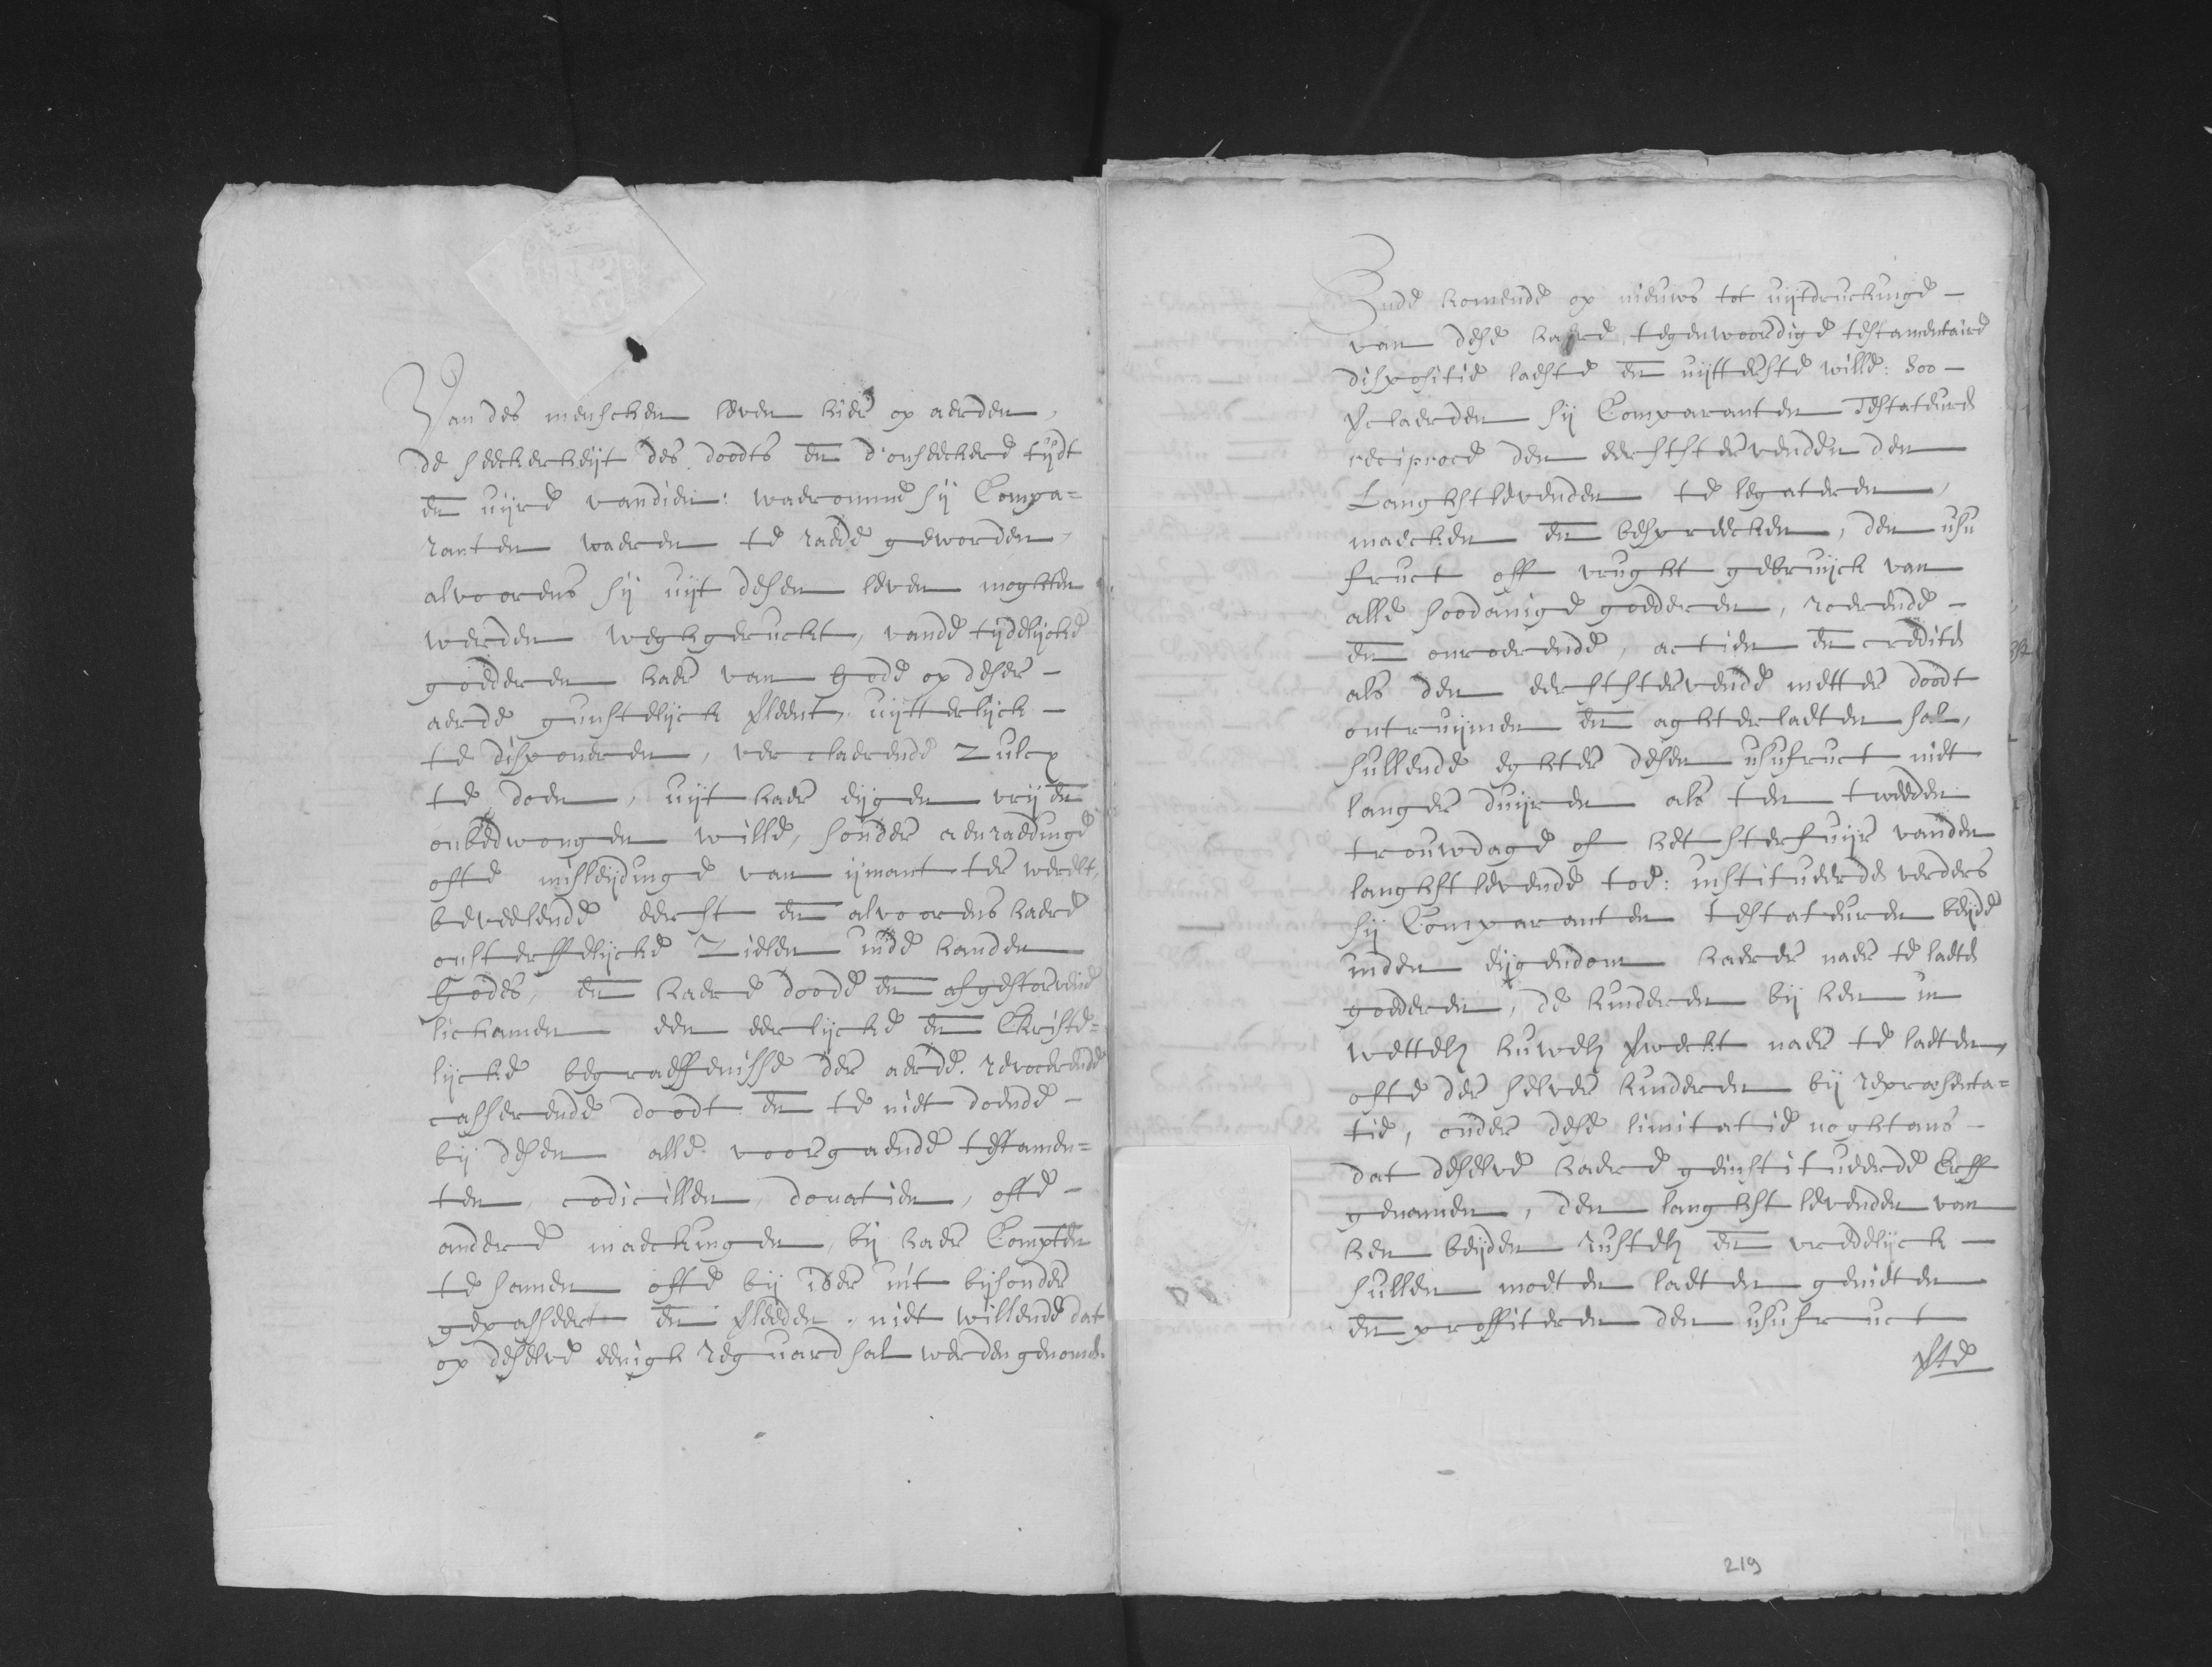 Van des menschen leven hier op aerden,
de seeckerheijt des doodts en d'onseeckere tijdt
en uijre vandien: waeromme sij Compa=
ranten waeren te raede geworden,
alvoorens sij uijt desen leven moghten
werden weghgeruckt, vande tijdelijcke
goederen haer van Gode op deser -
aerde gunstelijck verleent, uijtterlijck -
te disponeren, verclaerende zulcx
te doen, uijt haer eijgen vrij en
onbedwongen wille, sonder aenraedinge
ofte misleijdinge van ijmant ter werelt,
beveelende eerst en alvoorens haere
onsterffelijcke zielen inde handen
Godes, en haere doode en afgestorvene
lichamen een eerlijcke en Christe=
lijcke begraeffenisse der aerde. revocerende
casserende doodt en te niet doende -
bij desen alle voorgaende testamen=
ten, codicillen, donatien, ofte -
andere maeckingen, bij haer Compten
te samen ofte bij ider int bijsonder
gepasseert en verleeden, niet willende dat
op deselve eenigh reguard sal werden genomen.
Ende komende op nieuws tot uijtdruckinge -
van dese haere tegenwoordige testamentaire
dispositie laeste en uijtterste wille: soo -
verclaerden sij Comparanten Testateuren
reciproce den eerststervenden den
Langhstlevenden te legateren,
maecken en bespreecken, den usu
fruct off vrught gebruijck van
alle soodanige goederen, roerende -
en onroerende, actien en crediten
als den eerststervende metter doodt
ontruijmen en aghterlaeten sal,
sullende eghter desen usufruct niet
langer duijren als ten tweeden
trouwdage of het sterfuijr vanden
langhstlevende toe: institueerden verders
sij Comparanten testateuren beijde
inden eijgendom haerder naer te laeten
goederen, de kinderen bij hen in
wettelijck huwelijck verweckt naer te laeten,
ofte der selver kinderen bij repræsenta=
tie, onder dese limitatie noghtans -
dat deselve haere geinstitueerde Erff
genamen, den langhst levenden van
hen beijden rustelijck en vredelijck -
sullen moeten laeten genieten
en proffiteren den usufruct
219